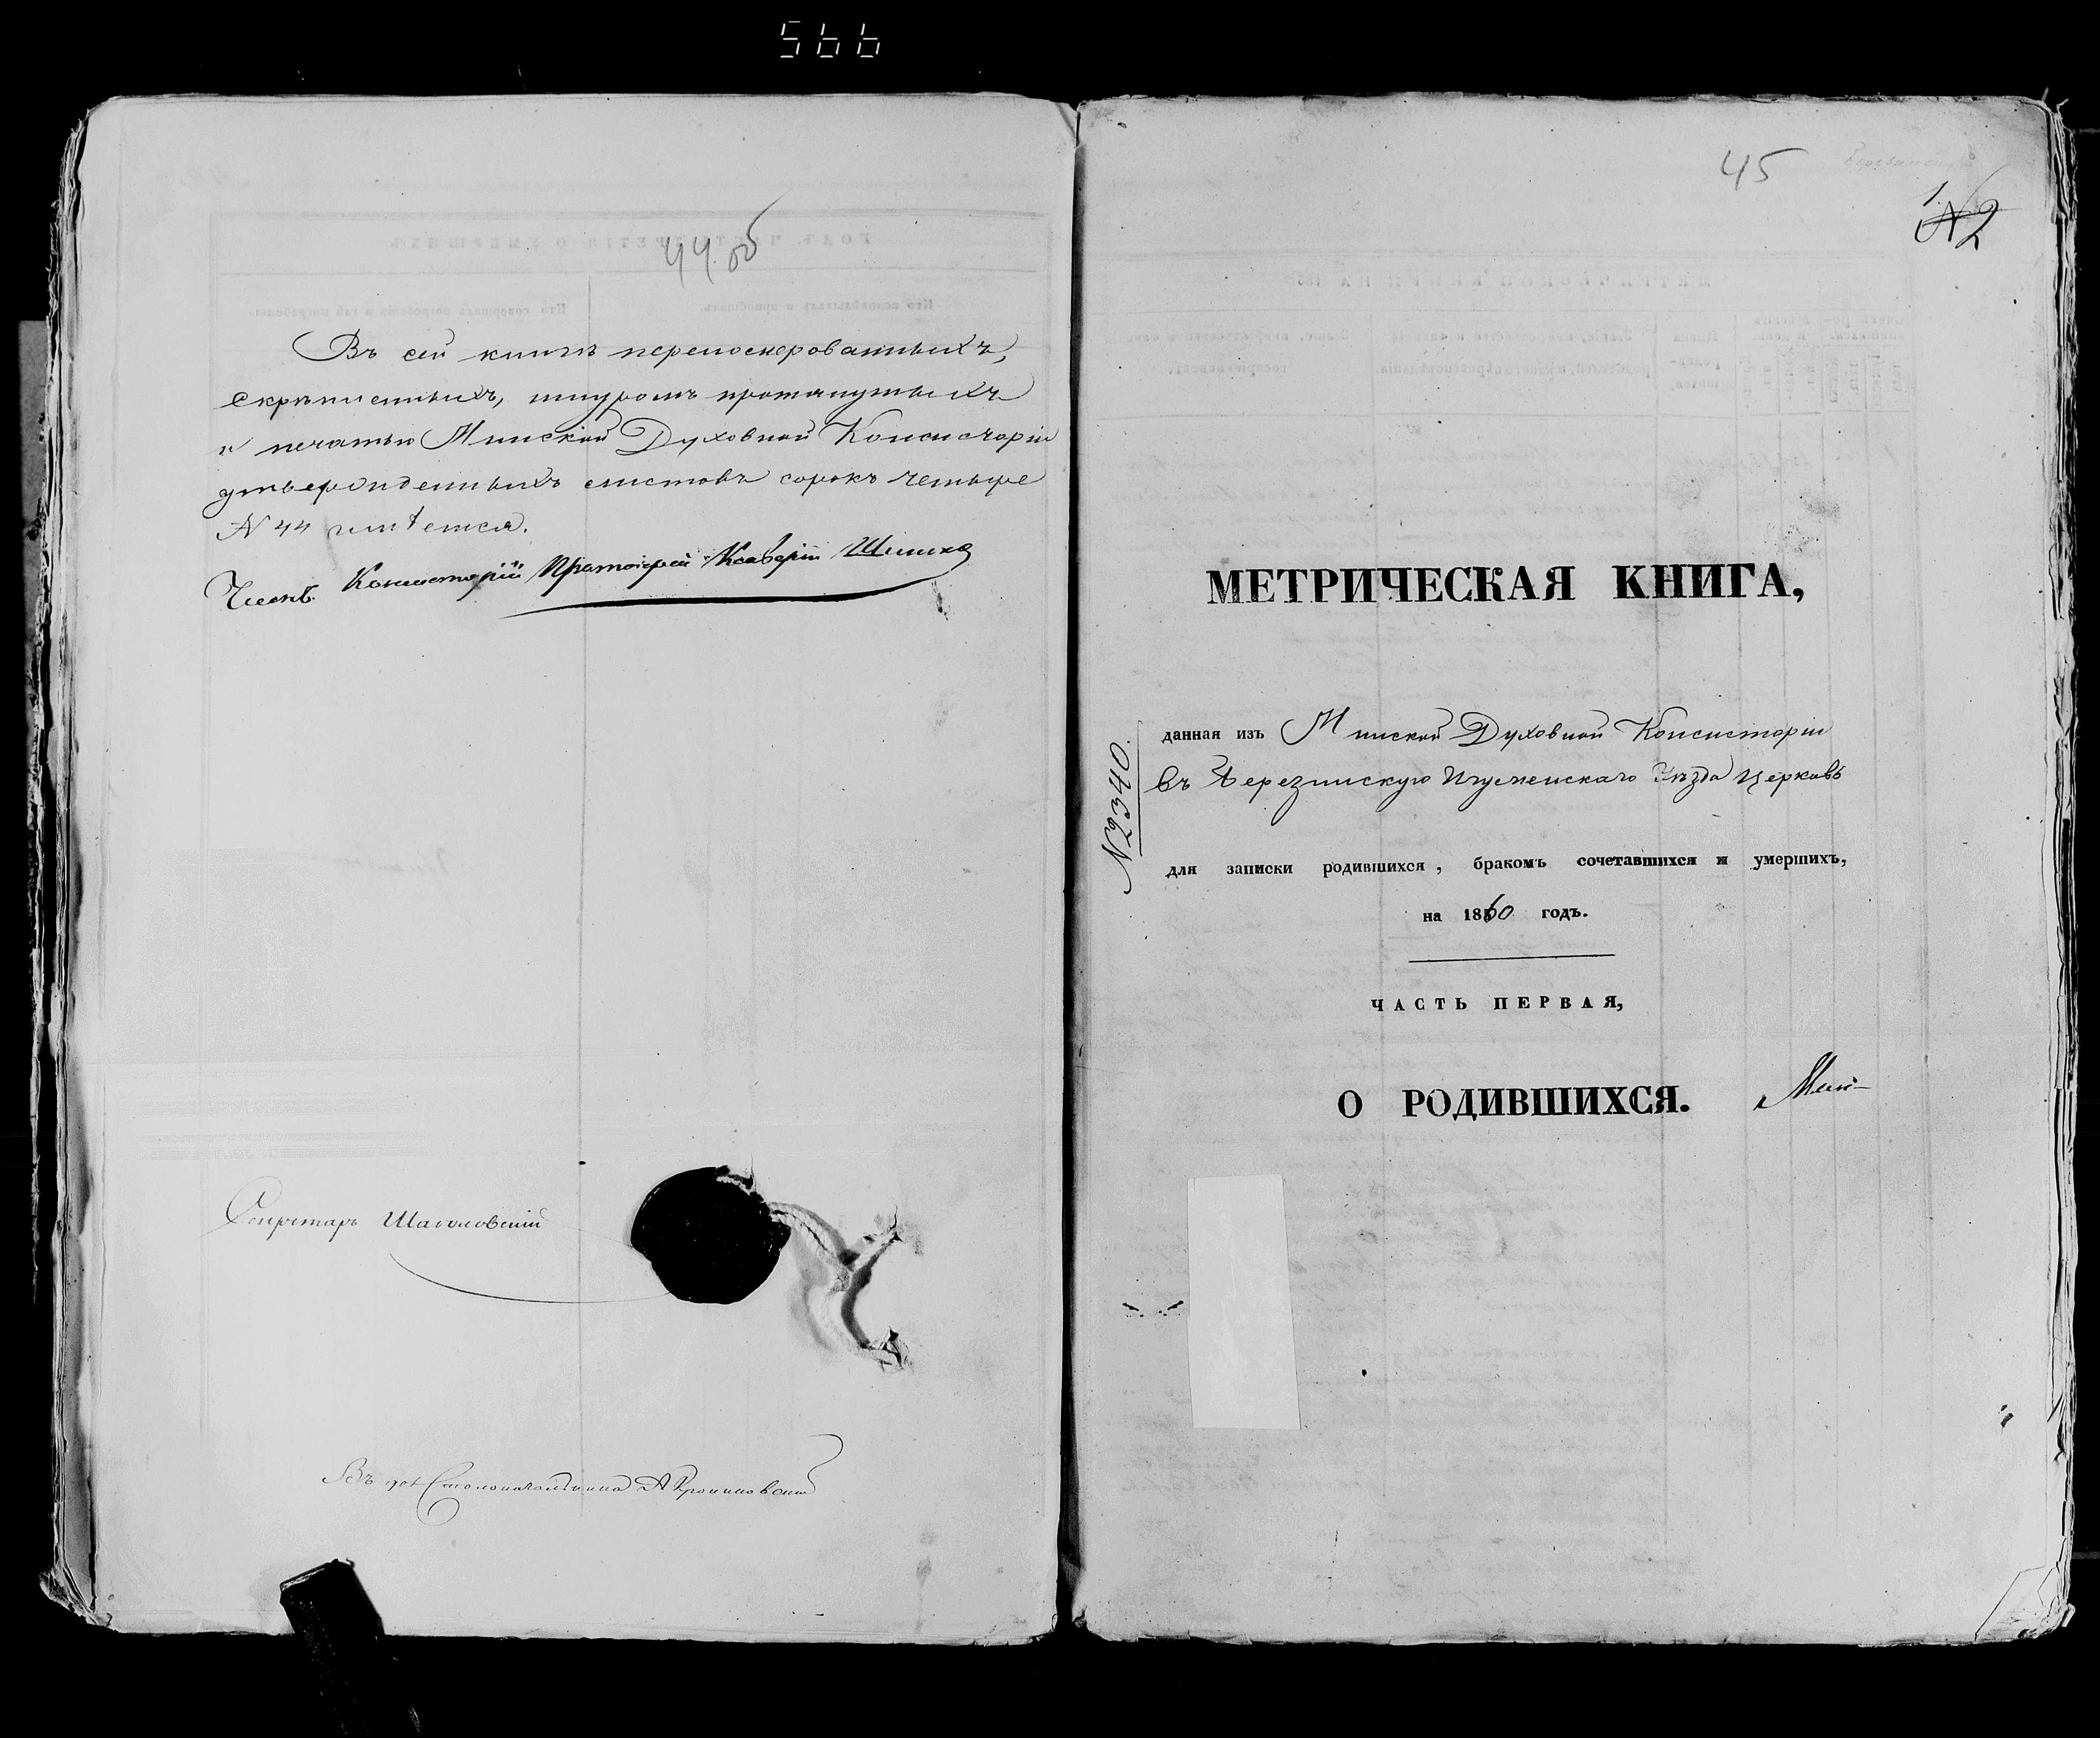 566
44 об
Въ сей книгѣ перенумерованныхъ,
скрѣпленныхъ, шнуромъ протянутыхъ
и печатью Минской Духовной Консисторіи
утвержденныхъ листовъ сорокъ четыре
N 44 имѣется.
Членъ Консисторіи Протоіерей Ксаверій
Секретарь
Въ дол. Столоначальника
45
1.
N 2
МЕТРИЧЕСКАЯ КНИГА,
данная изъ Минской Духовной Консисторіи
въ Березинскую Игуменскаго Уѣзда Церковь
N 2340.
для записки родившихся, бракомъ сочетавшихся и умершихъ,
на 1860 годъ.
ЧАСТЬ ПЕРВАЯ,
О РОДИВШИХСЯ.